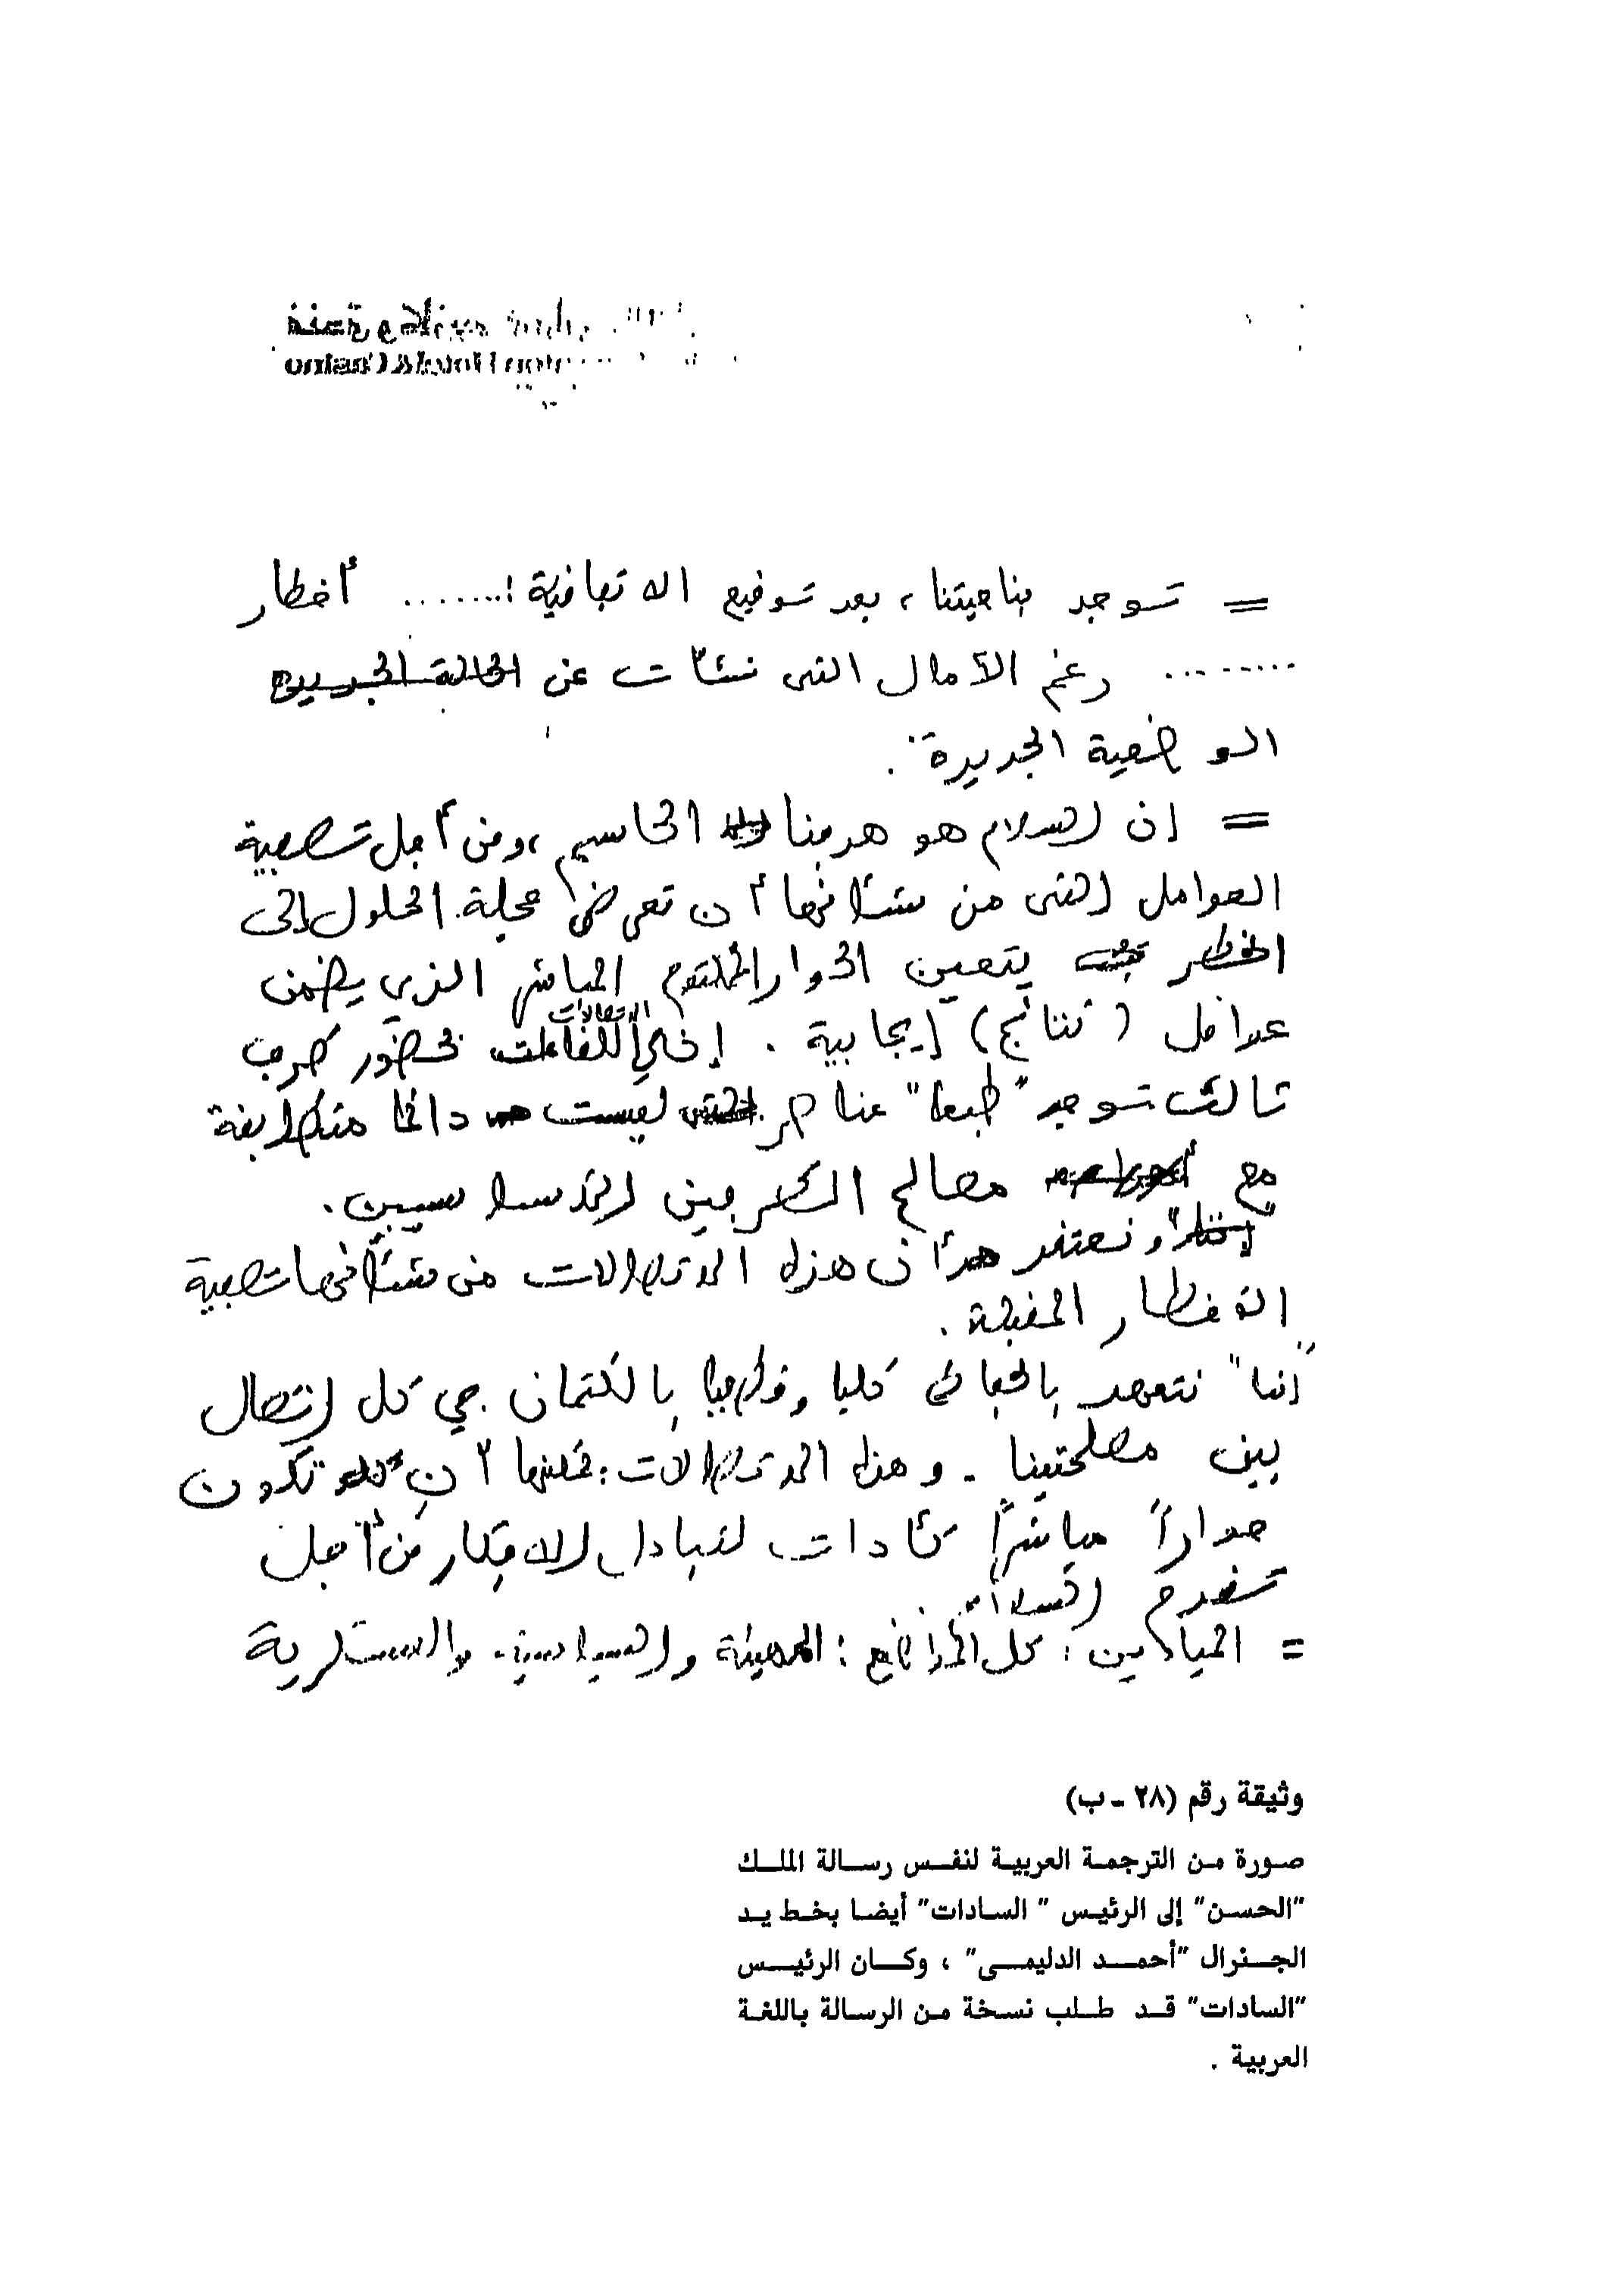 = توجد بناحيتنا، بعد توقيع الاتفاقية! ....... أخطار
......... رغم الآمال التى نشأت عن الحالة الجديدة
الوضعية الجديدة.
= ان السلام هو هدفنا الحاسم، ومن أجل تصفية
العوامل التى من شأنها أن تعرض عجلة الحلول إلى
الخطر يتعين الحوار المباشر الذي يضمن
عوامل (نتائج) إيجابية. الاتصالات بحضور طرف
ثالث توجد "طبعا" عناصر ليست دائما متطابقة
مع مصالح الطرفين الأساسيين.
ونعتقد أن هذه الاتصالات من شأنها تصفية
الأخطار المقبلة.
"اننا" نتعهد بالحفاظ كليا وقطعيا بالكتمان في كل اتصال
بين مصلحتينا - وهذه الاتصالات: يمكنها أن تكون
حواراً مباشراً كأداة لتبادل الافكار من أجل
تقدم السلام.
= الميادين: كل المواضيع: والسياسية والعسكرية
وثيقة رقم (٢٨ - ب)
صورة من الترجمة العربية لنفس رسالة الملك
"الحسن" إلى الرئيس " السادات" أيضا بخط يد
الجنرال "أحمد الدليمى" ، وكان الرئيس
"السادات" قد طلب نسخة من الرسالة باللغة
العربية .